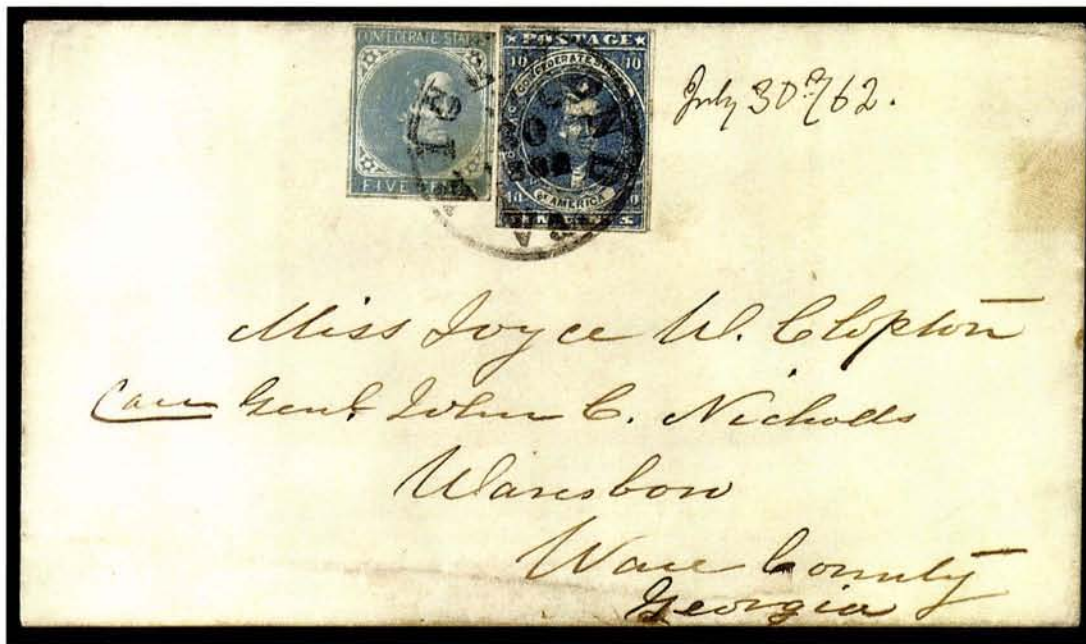 CONFEDERATE STAT
FIVE
★POSTAGE★
10 10
CONFEDERATE
OF AMERICA
10
July 30th/62.
Miss Joyce W. Clopton
Care Genl. John C. Nicholls
Waresboro
Ware County
Georgia